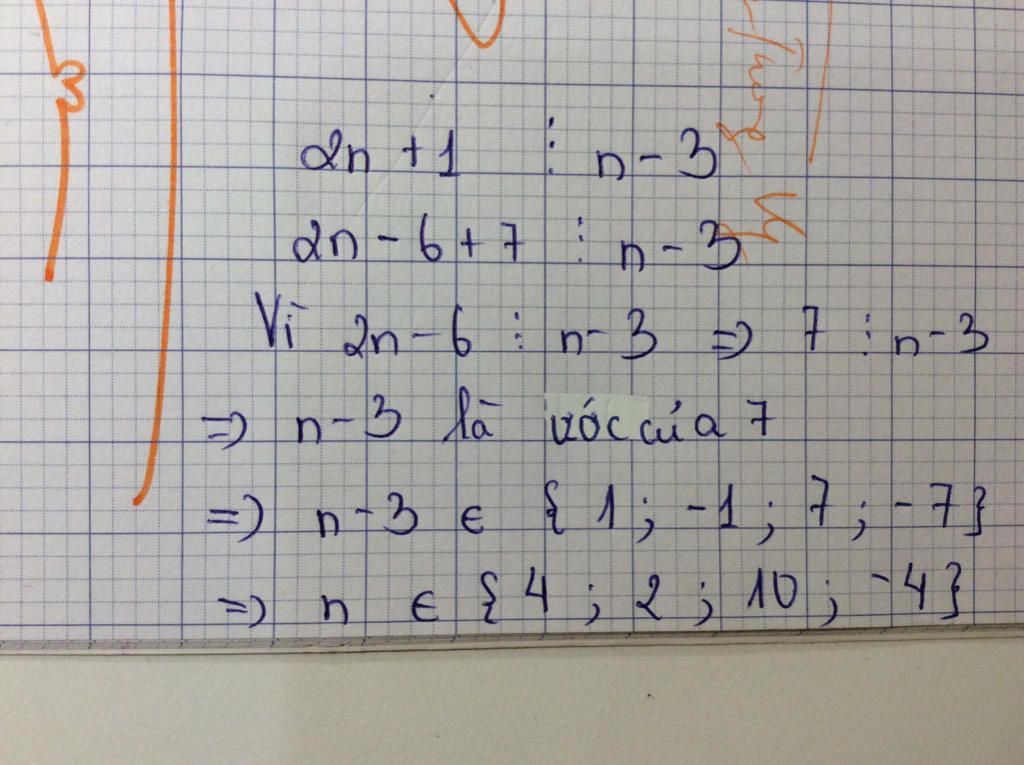 2n + 1 ⋮ n - 3
2n - 6 + 7 ⋮ n - 3
Vì 2n - 6 ⋮ n - 3 => 7 ⋮ n - 3
=> n - 3 là ước của 7
=> n - 3 ∈ { 1 ; -1 ; 7 ; -7 }
=> n ∈ { 4 ; 2 ; 10 ; -4 }